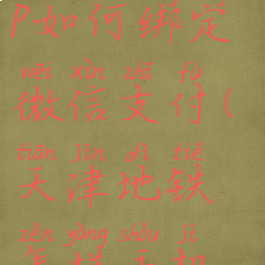 P如何绑定
wēi xìn zhī fù
微信支付(
tiān jīn dì tiě
天津地铁
zěn yàng shǒu jī
怎样手机